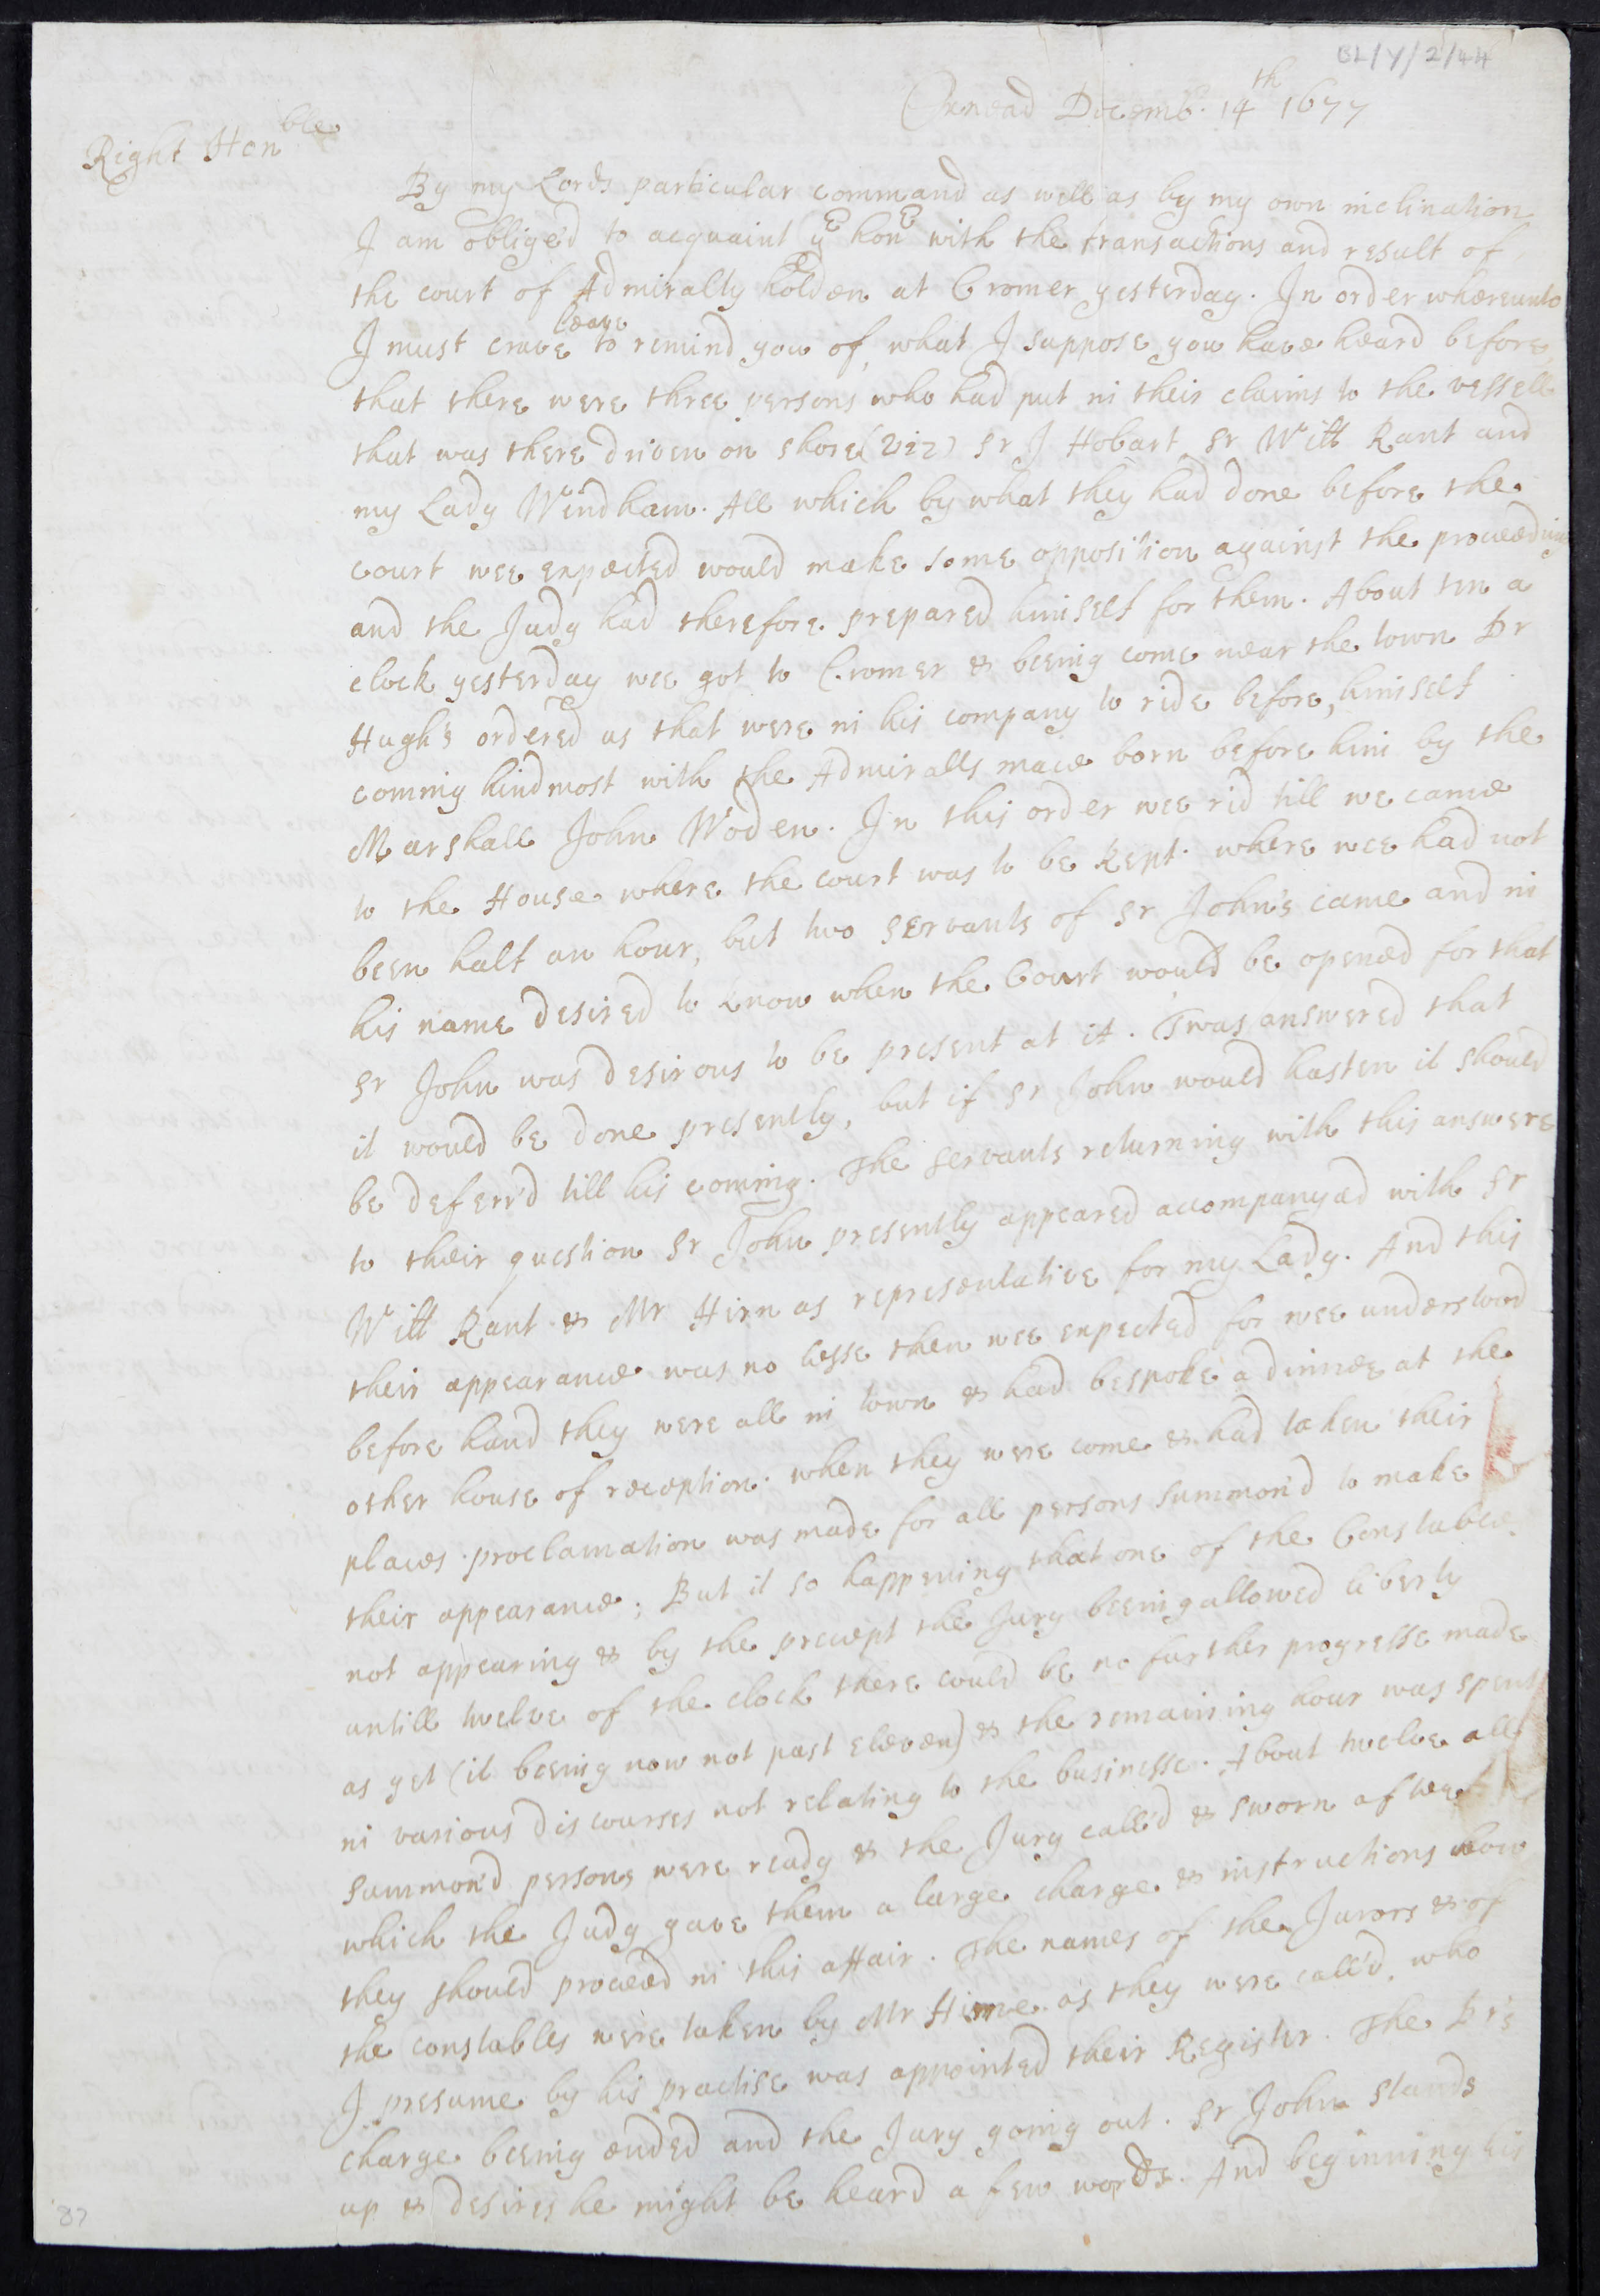 BL/Y/2/44
Oxnead Decemb. 14th 1677
Right Honble
By my Lords particular command as well as by my own inclination
I am oblig'd to acquaint yr honr with the transactions and result of
the court of Admiralty holden at Cromer yesterday. In order whereunto
I must crave leave to remind you of, what I suppose you have heard before,
that there were three persons who had put in their claims to the vessell
that was there driven on shore (viz) Sr J Hobart Sr Will Rant and
my Lady Windham. All which by what they had done before the
court wee expected would make some opposition against the proceedings
and the Judg had therefore prepared himself for them. About ten a
clock yesterday wee got to Cromer & beeing come near the town Dr
Hughs ordered us that were in his company to ride before, himself
coming hindmost with the Admiralls mace born before him by the
Marshall John Woden. In this order wee rid till we came
to the House where the court was to be kept. where wee had not
been half an hour, but two servants of Sr John's came and in
his name desired to know when the Court would be opened for that
Sr John was desirous to be present at it. Twas answered that
it would be done presently, but if Sr John would hasten it should
be deferr'd till his coming. The servants returning with this answere
to their question Sr John presently appeared accompanyed with Sr
Will Rant & Mr Hirn as representative for my Lady. And this
their appearance was no lesse then wee expected for wee understood
before hand they were all in town & had bespoke a dinner at the
other house of reception. when they were come & had taken their
places proclamation was made for all persons summon'd to make
their appearance; But it so happening that one of the Constables
not appearing & by the precept the Jury beeing allowed liberty
untill twelve of the clock there could be no further progresse made
as yet (it beeing now not past eleven) & the remaining hour was spent
in various discourses not relating to the businesse. About twelve all
summon'd persons were ready & the Jury call'd & sworn after
which the Judg gave them a large charge & instructions how
they should proceed in this affair. The names of the Jurors & of
the constables were taken by Mr Hirne as they were call'd, who
I presume by his practise was appointed their Register. The Dr's
charge beeing ended and the Jury going out. Sr John stands
up & desires he might be heard a few words. And beginning his
87